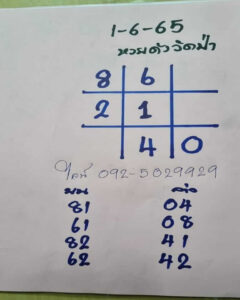 1-6-65
หวยดังวัดป่า
8 6
2 1
4 0
092-5029929
บน ล่าง
81 04
61 08
82 41
62 42